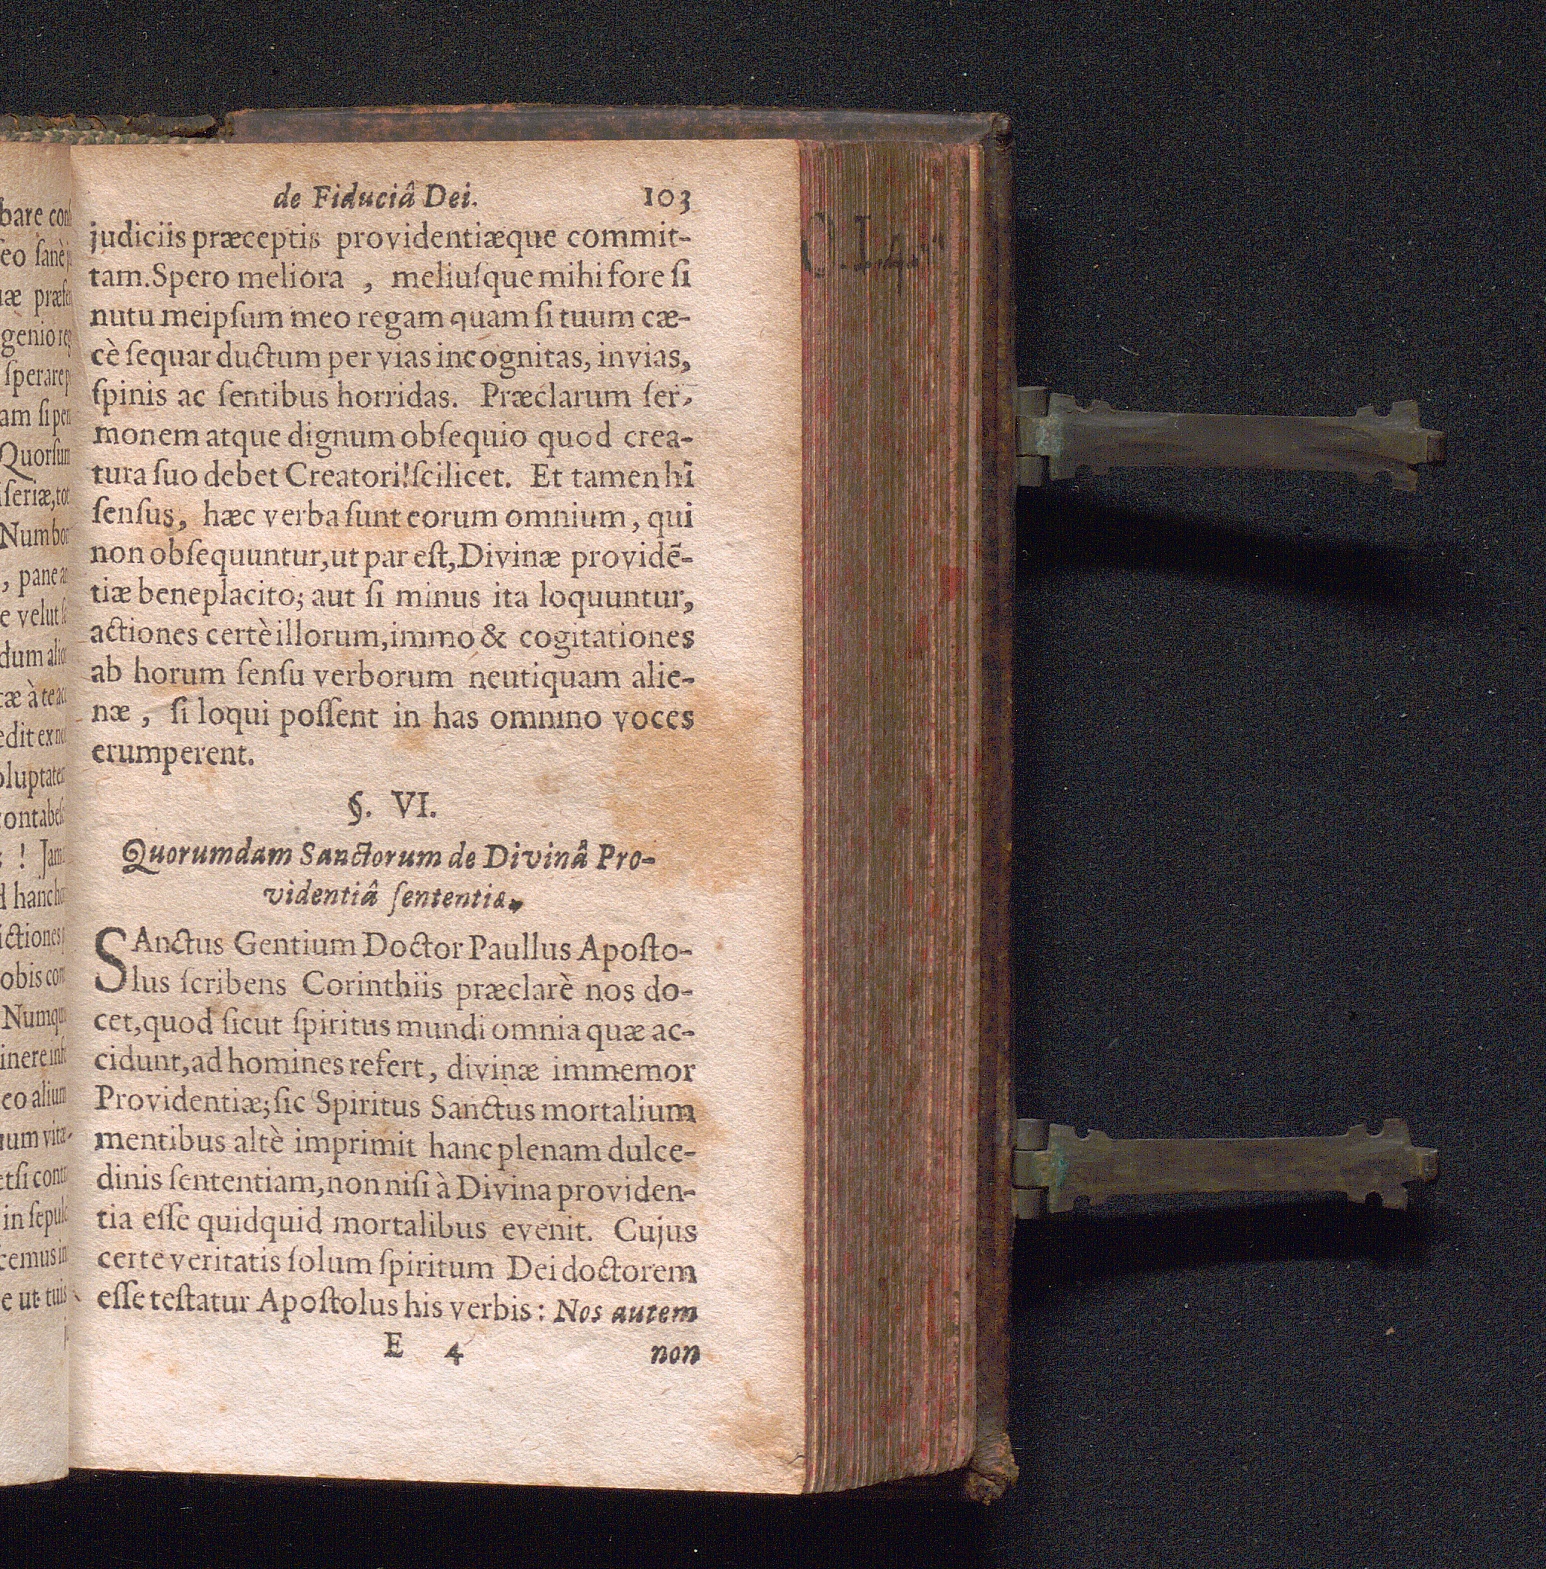 de Fiduciâ Dei. 103
judiciis præceptis providentiæque commit-
tam. Spero meliora , meliuſque mihi fore ſi
nutu meipſum meo regam quam ſi tuum cæ-
cè ſequar ductum per vias incognitas, invias,
ſpinis ac ſentibus horridas. Præclarum ſer-
monem atque dignum obſequio quod crea-
tura ſuo debet Creatori! ſcilicet. Et tamen hi
ſenſus, hæc verba ſunt eorum omnium, qui
non obſequuntur, ut par eſt, Divinæ providẽ-
tiæ beneplacito; aut ſi minus ita loquuntur,
actiones certè illorum, immo & cogitationes
ab horum ſenſu verborum neutiquam alie-
næ , ſi loqui poſſent in has omnino voces
erumperent.
§. VI.
Quorumdam Sanctorum de Divinâ Pro-
videntiâ ſententia.
SAnctus Gentium Doctor Paullus Apoſto-
lus ſcribens Corinthiis præclarè nos do-
cet, quod ſicut ſpiritus mundi omnia quæ ac-
cidunt, ad homines refert, divinæ immemor
Providentiæ; ſic Spiritus Sanctus mortalium
mentibus altè imprimit hanc plenam dulce-
dinis ſententiam, non niſi à Divina providen-
tia eſſe quidquid mortalibus evenit. Cujus
certe veritatis ſolum ſpiritum Dei doctorem
eſſe teſtatur Apoſtolus his verbis: Nos autem
E 4 non